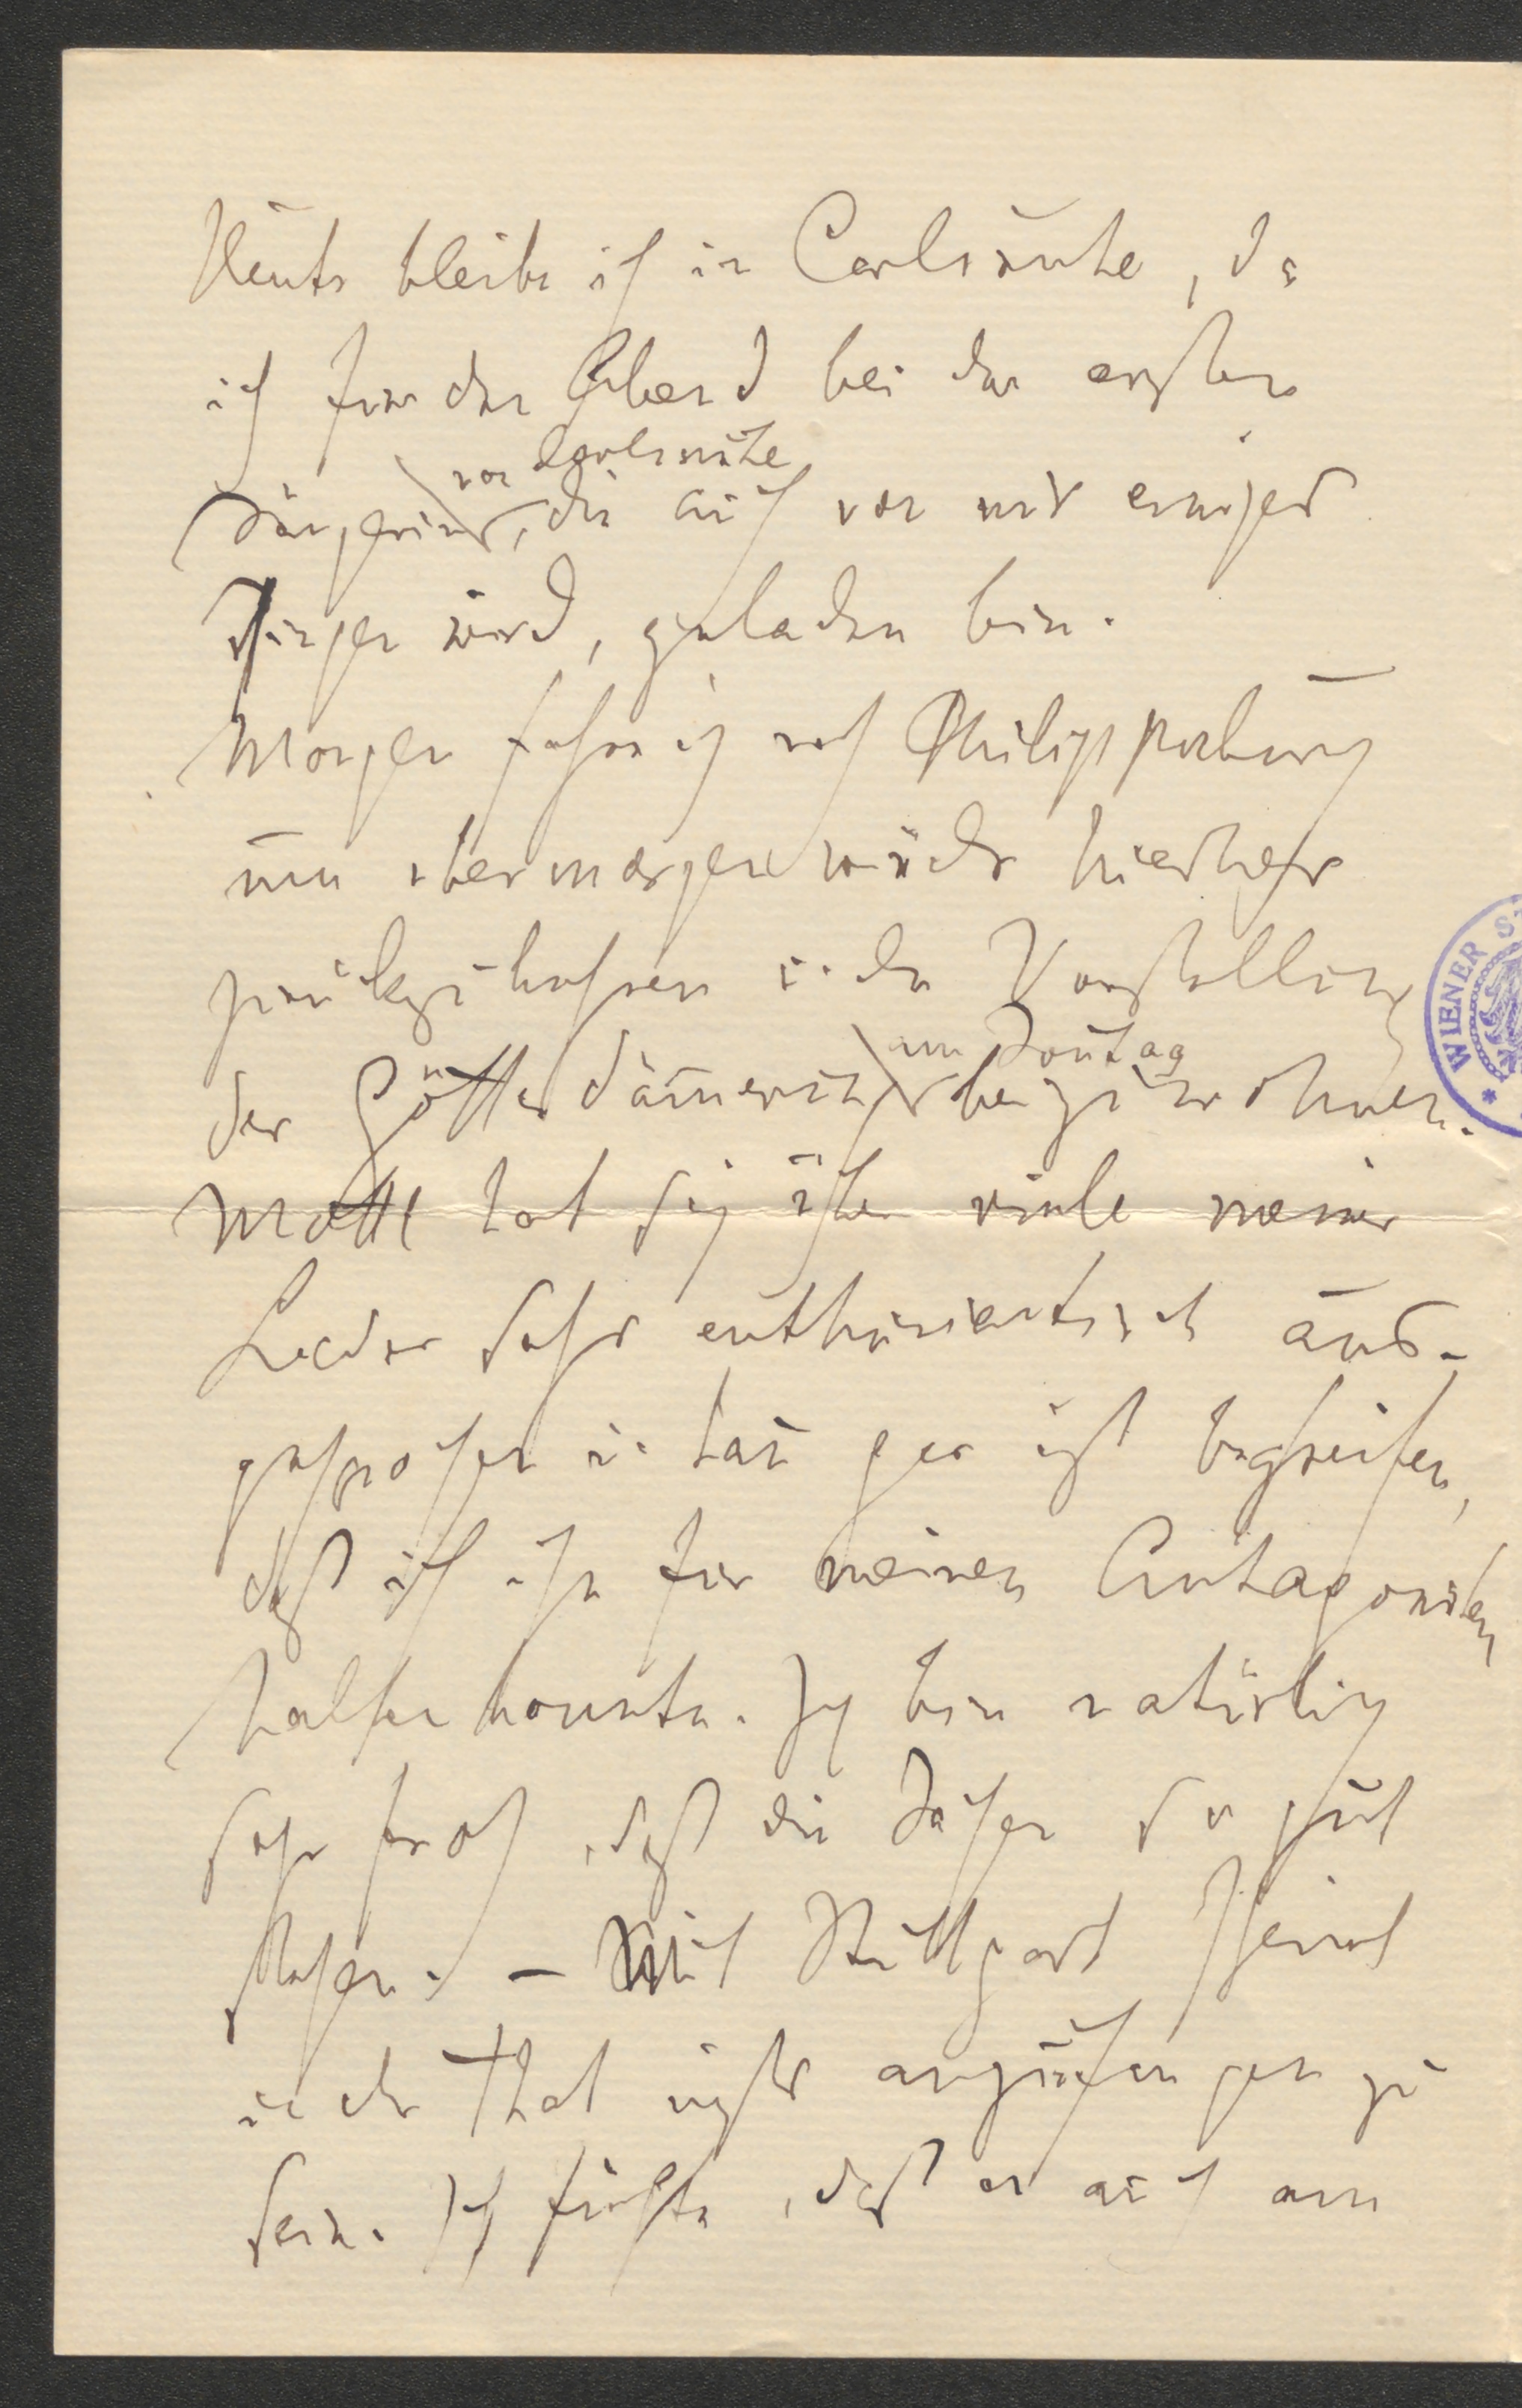 Heute bleibe ich in Carlsruhe, da
ich für den Abend bei der ersten
von Carlsruhe
Sängerin, die auch von mir einiges
singen wird, geladen bin.
Morgen fahre ich nach Philippsburg
um übermorgen wieder hierher
zurückzukehren u. der Vorstellung
am Sontag
der Götterdämerung beizuwohnen.
Mottl hat sich über viele meiner
Lieder sehr enthusiastisch aus-
gesprochen u. kan gar nicht begreifen,
daß ich ihn für meinen Antagonisten
halten konnte. Ich bin natürlich
sehr froh, daß die Sachen so gut
stehen. – Mit Stuttgart scheint
in der That nichts anzufangen zu
sein. Ich fürchte, daß er auch am
WIENER S